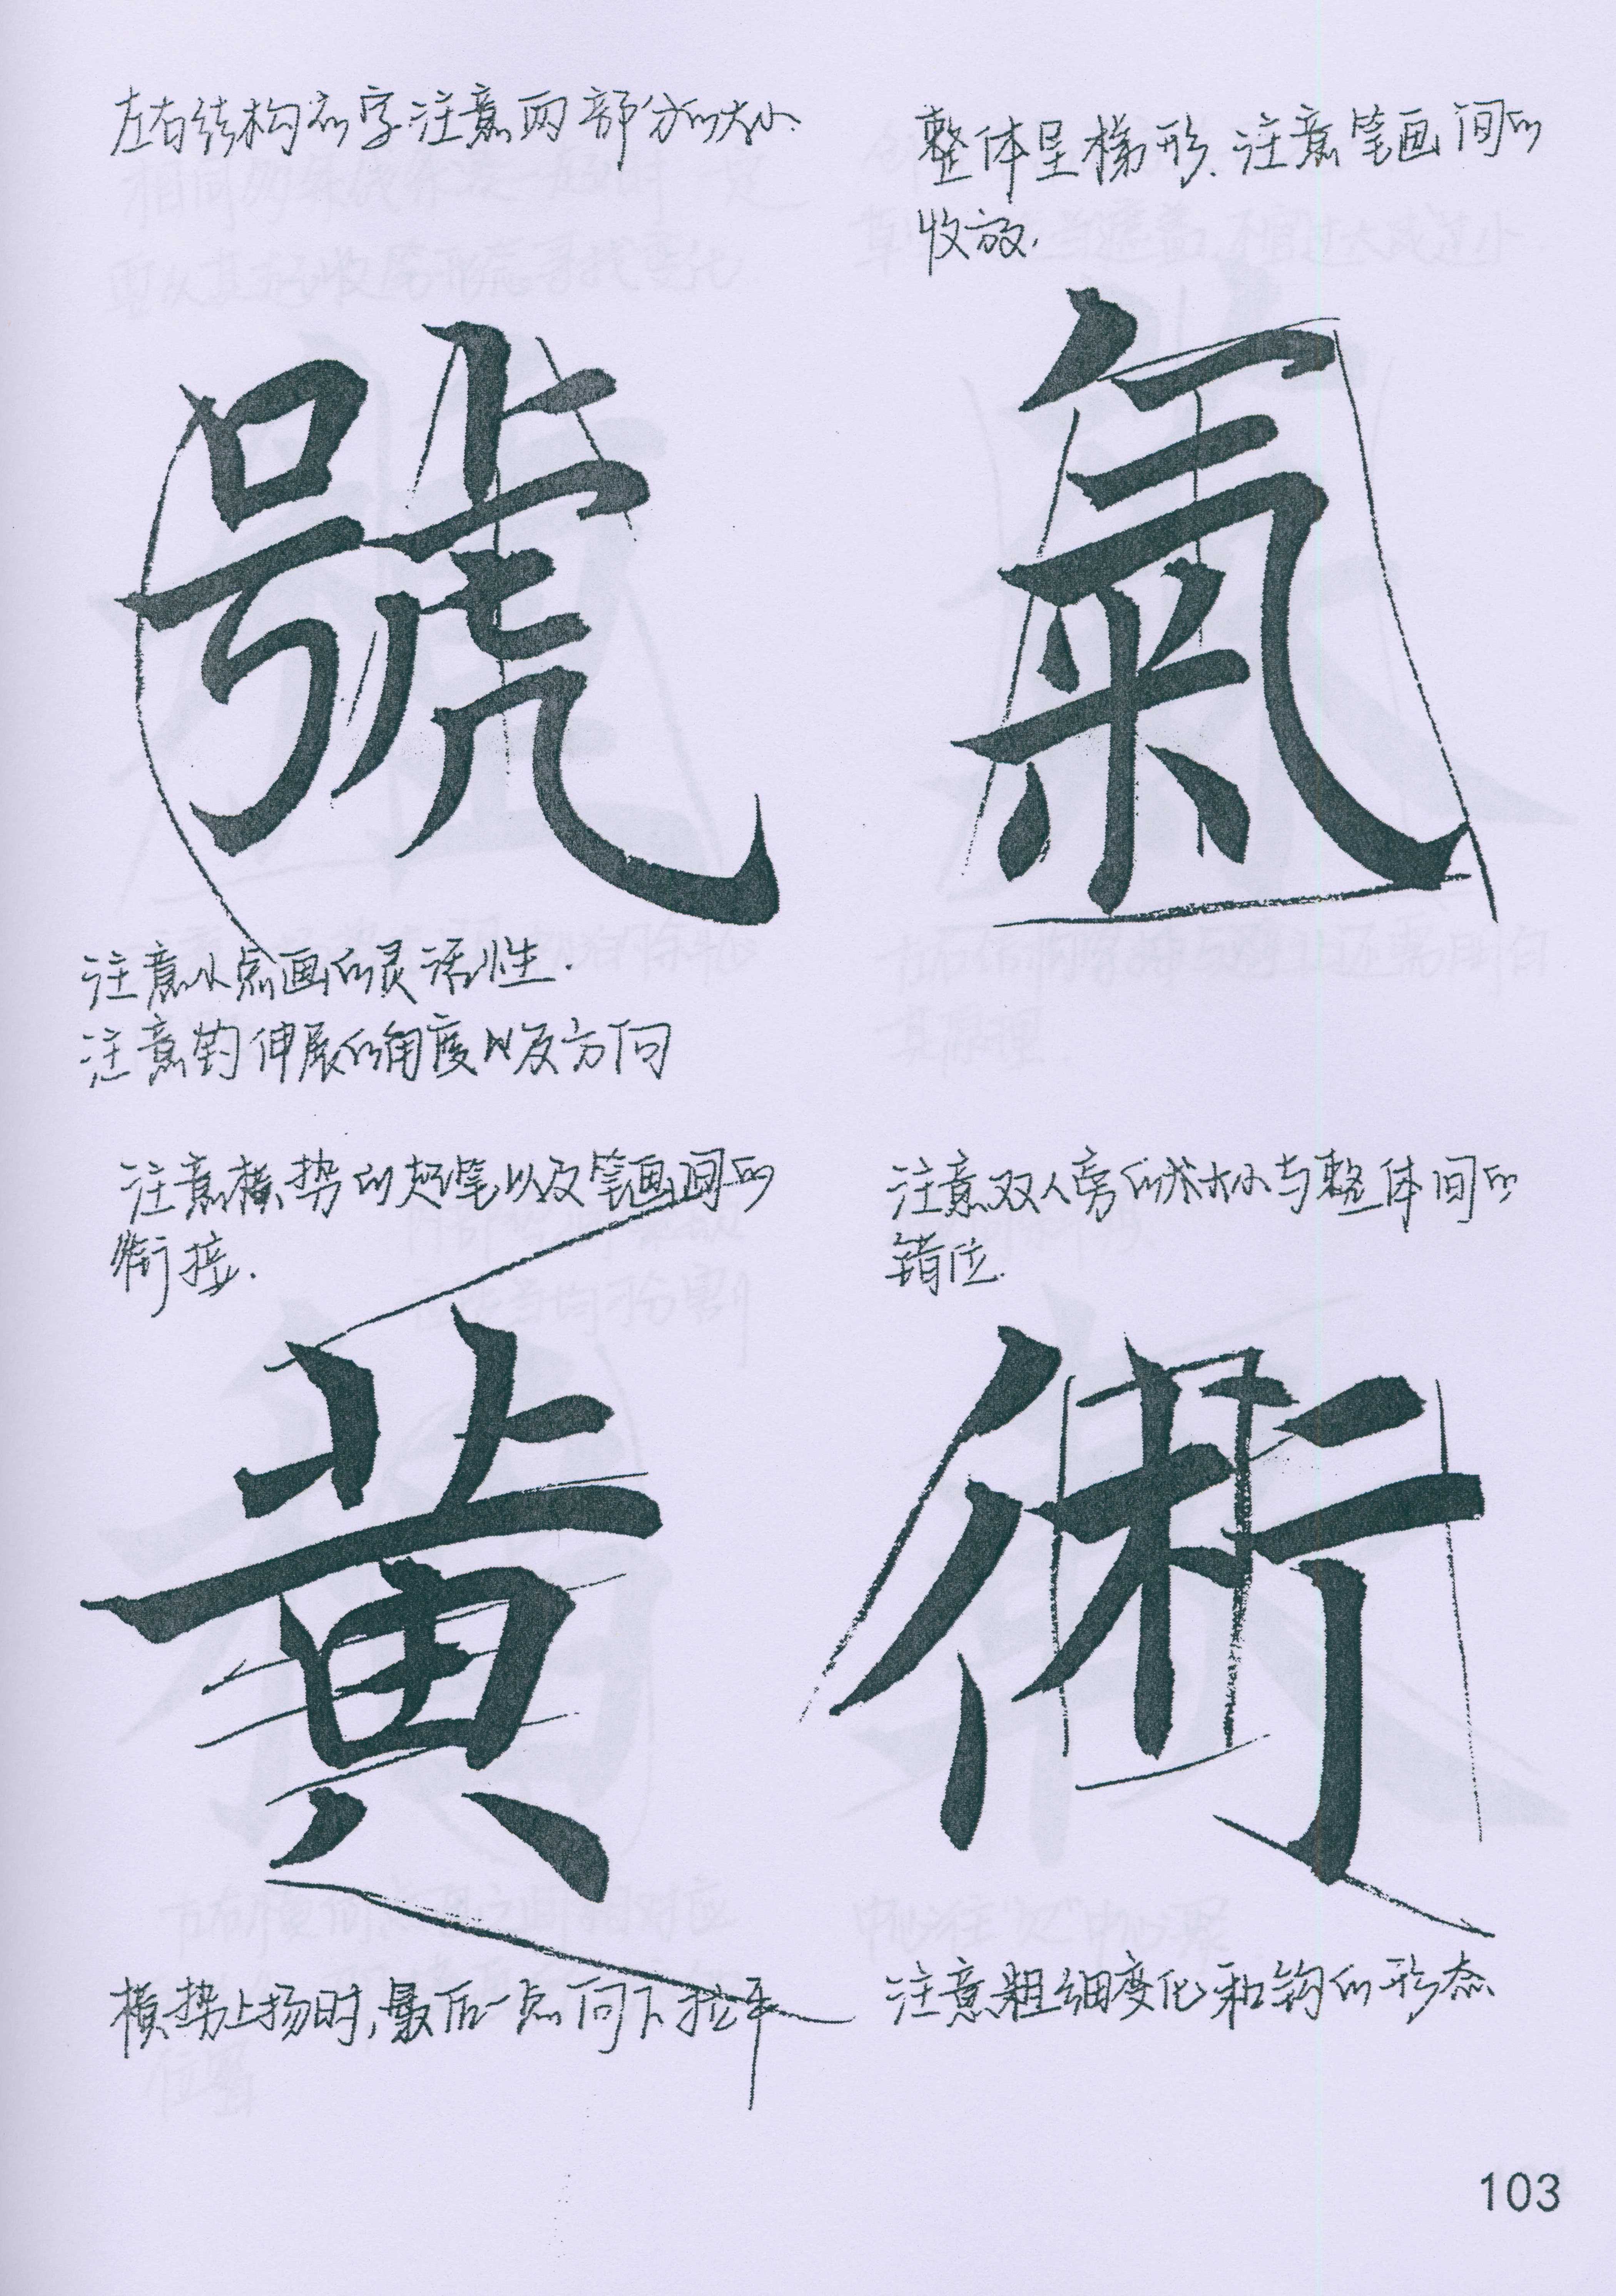 左右结构的字注意两部分的大小.
整体呈梯形.注意笔画间的
收放.
號
氣
注意小点画的灵活性.
注意钩伸展的角度以及方向
注意横势的起笔以及笔画间的
衔接.
注意双人旁的大小与整体间的
错位.
黄
術
横势上扬时,最后一点向下拉平
注意粗细变化和钩的形态
103